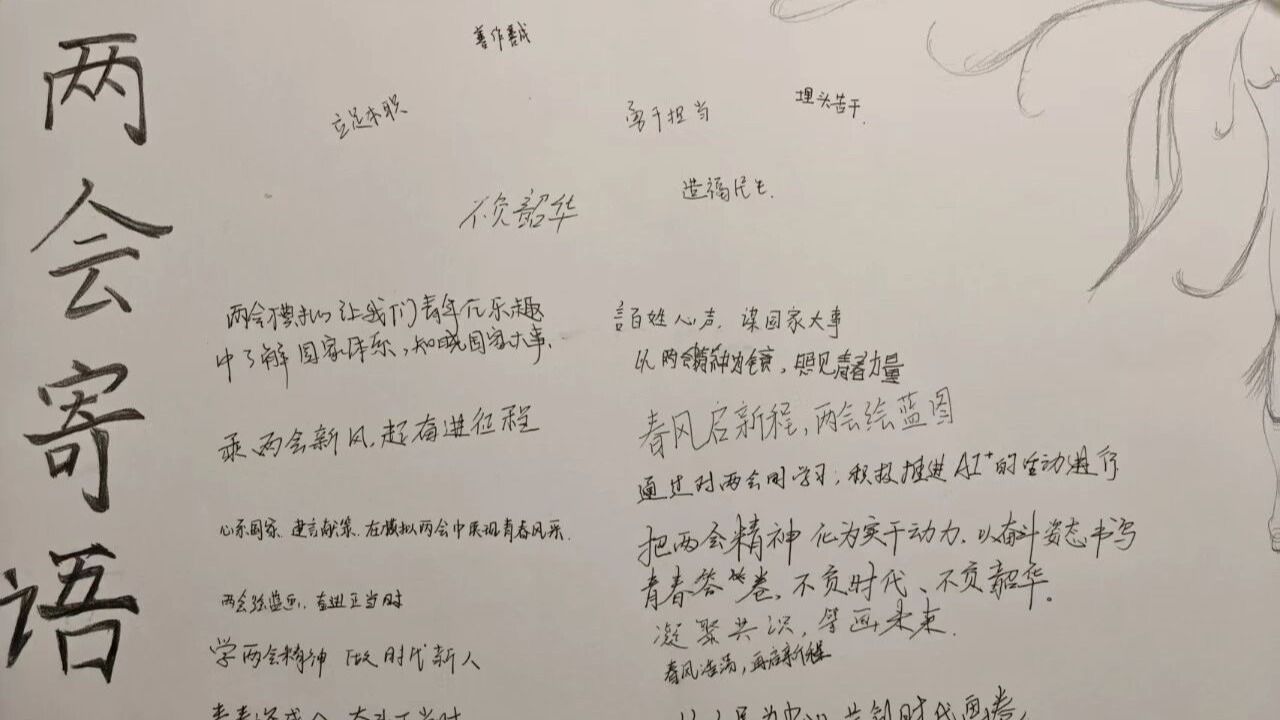 两会寄语
善作善成
立足本职
勇于担当
埋头苦干.
造福民生.
不负韶华
两会模拟让我们青年在乐趣
中了解国家体系,知晓国家大事.
乘两会新风,赴奋进征程
心系国家 建言献策 在模拟两会中展现青春风采.
两会绘蓝图,奋进正当时
学两会精神 做时代新人
言百姓心声. 谋国家大事
以两会精神为镜,照见青春力量
春风启新程,两会绘蓝图
通过对两会的学习,积极推进AI+的活动进行
把两会精神化为实干动力.以奋斗姿态书写
青春答卷,不负时代、不负韶华.
凝聚共识,笃画未来.
春风浩荡,再启新程